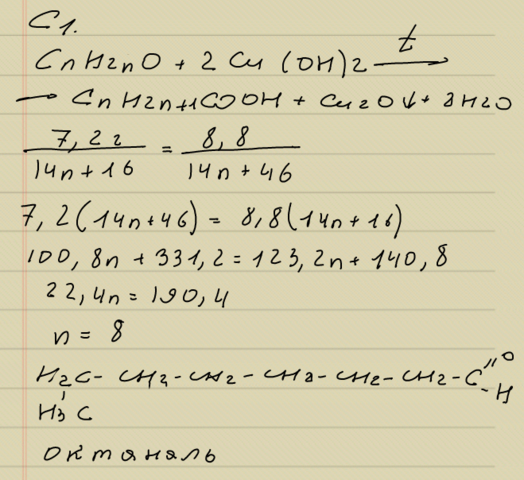 C1.
CnH2nO + 2 Cu (OH)2 t→
→ CnH2n+1COOH + Cu2O↓ + 3H2O
7,2г / 14n + 16 = 8,8 / 14n + 46
7,2(14n+46) = 8,8(14n+16)
100,8n + 331,2 = 123,2n + 140,8
22,4n = 190,4
n = 8
H2C - CH2 - CH2 - CH2 - CH2 - CH2 - C =O -H
H3C
октаналь